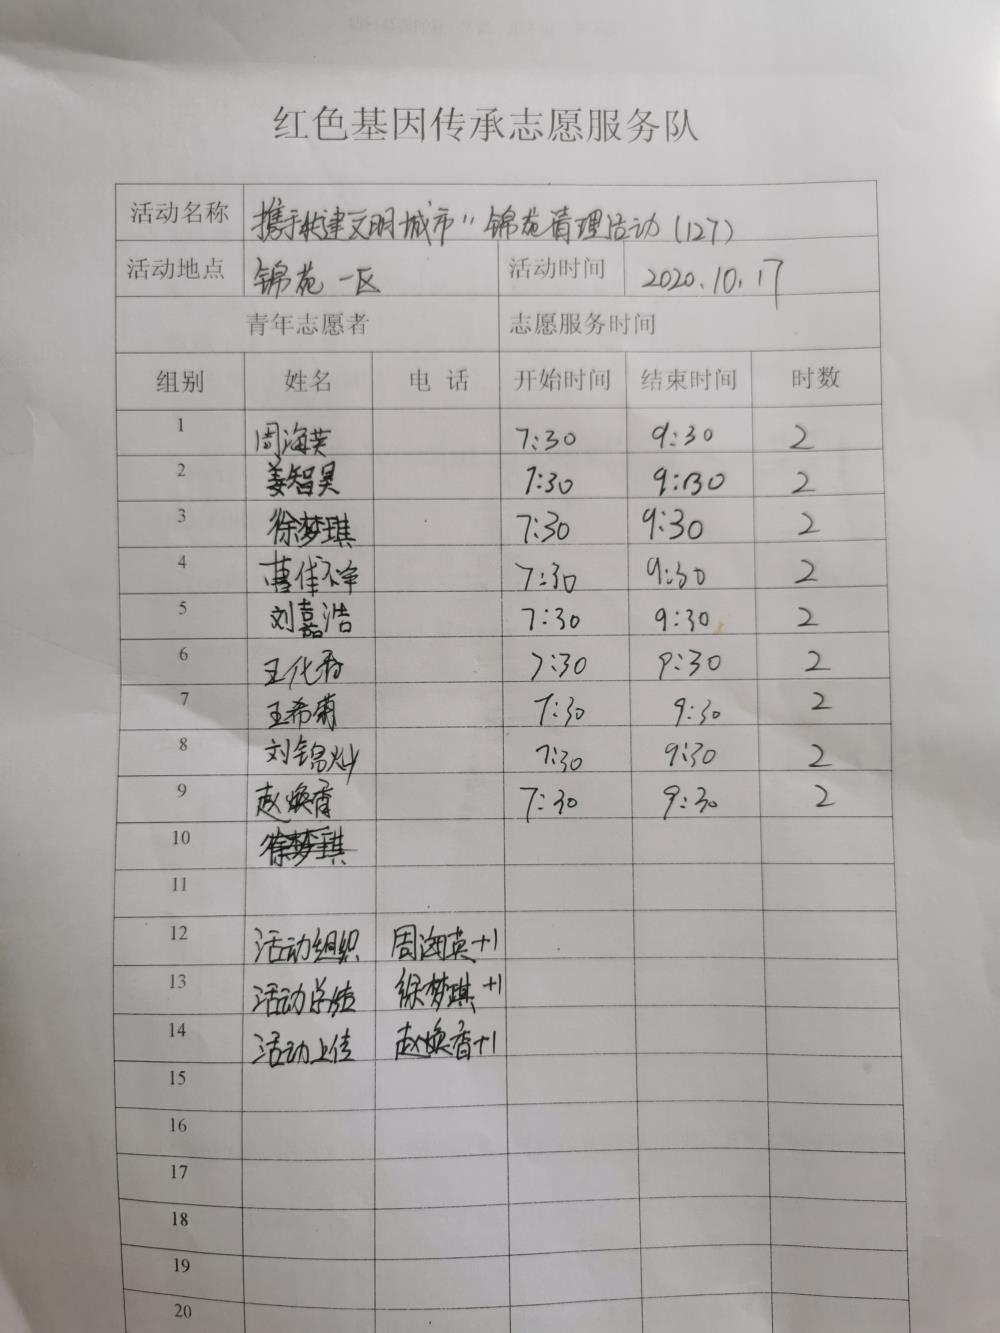 红色基因传承志愿服务队
活动名称 携手共建文明城市"锦苑清理活动(127)
活动地点 锦苑一区 活动时间 2020.10.17
青年志愿者 志愿服务时间
组别 姓名 电话 开始时间 结束时间 时数
1 周海英 7:30 9:30 2
2 姜智昊 7:30 9:30 2
3 徐梦琪 7:30 9:30 2
4 7:30 9:30 2
5 刘嘉浩 7:30 9:30 2
6 王化香 7:30 9:30 2
7 王希菊 7:30 9:30 2
8 刘锦灿 7:30 9:30 2
9 赵焕香 7:30 9:30 2
10 徐梦琪
11
12 活动组织 周海英+1
13 活动总结 徐梦琪+1
14 活动上传 赵焕香+1
15
16
17
18
19
20